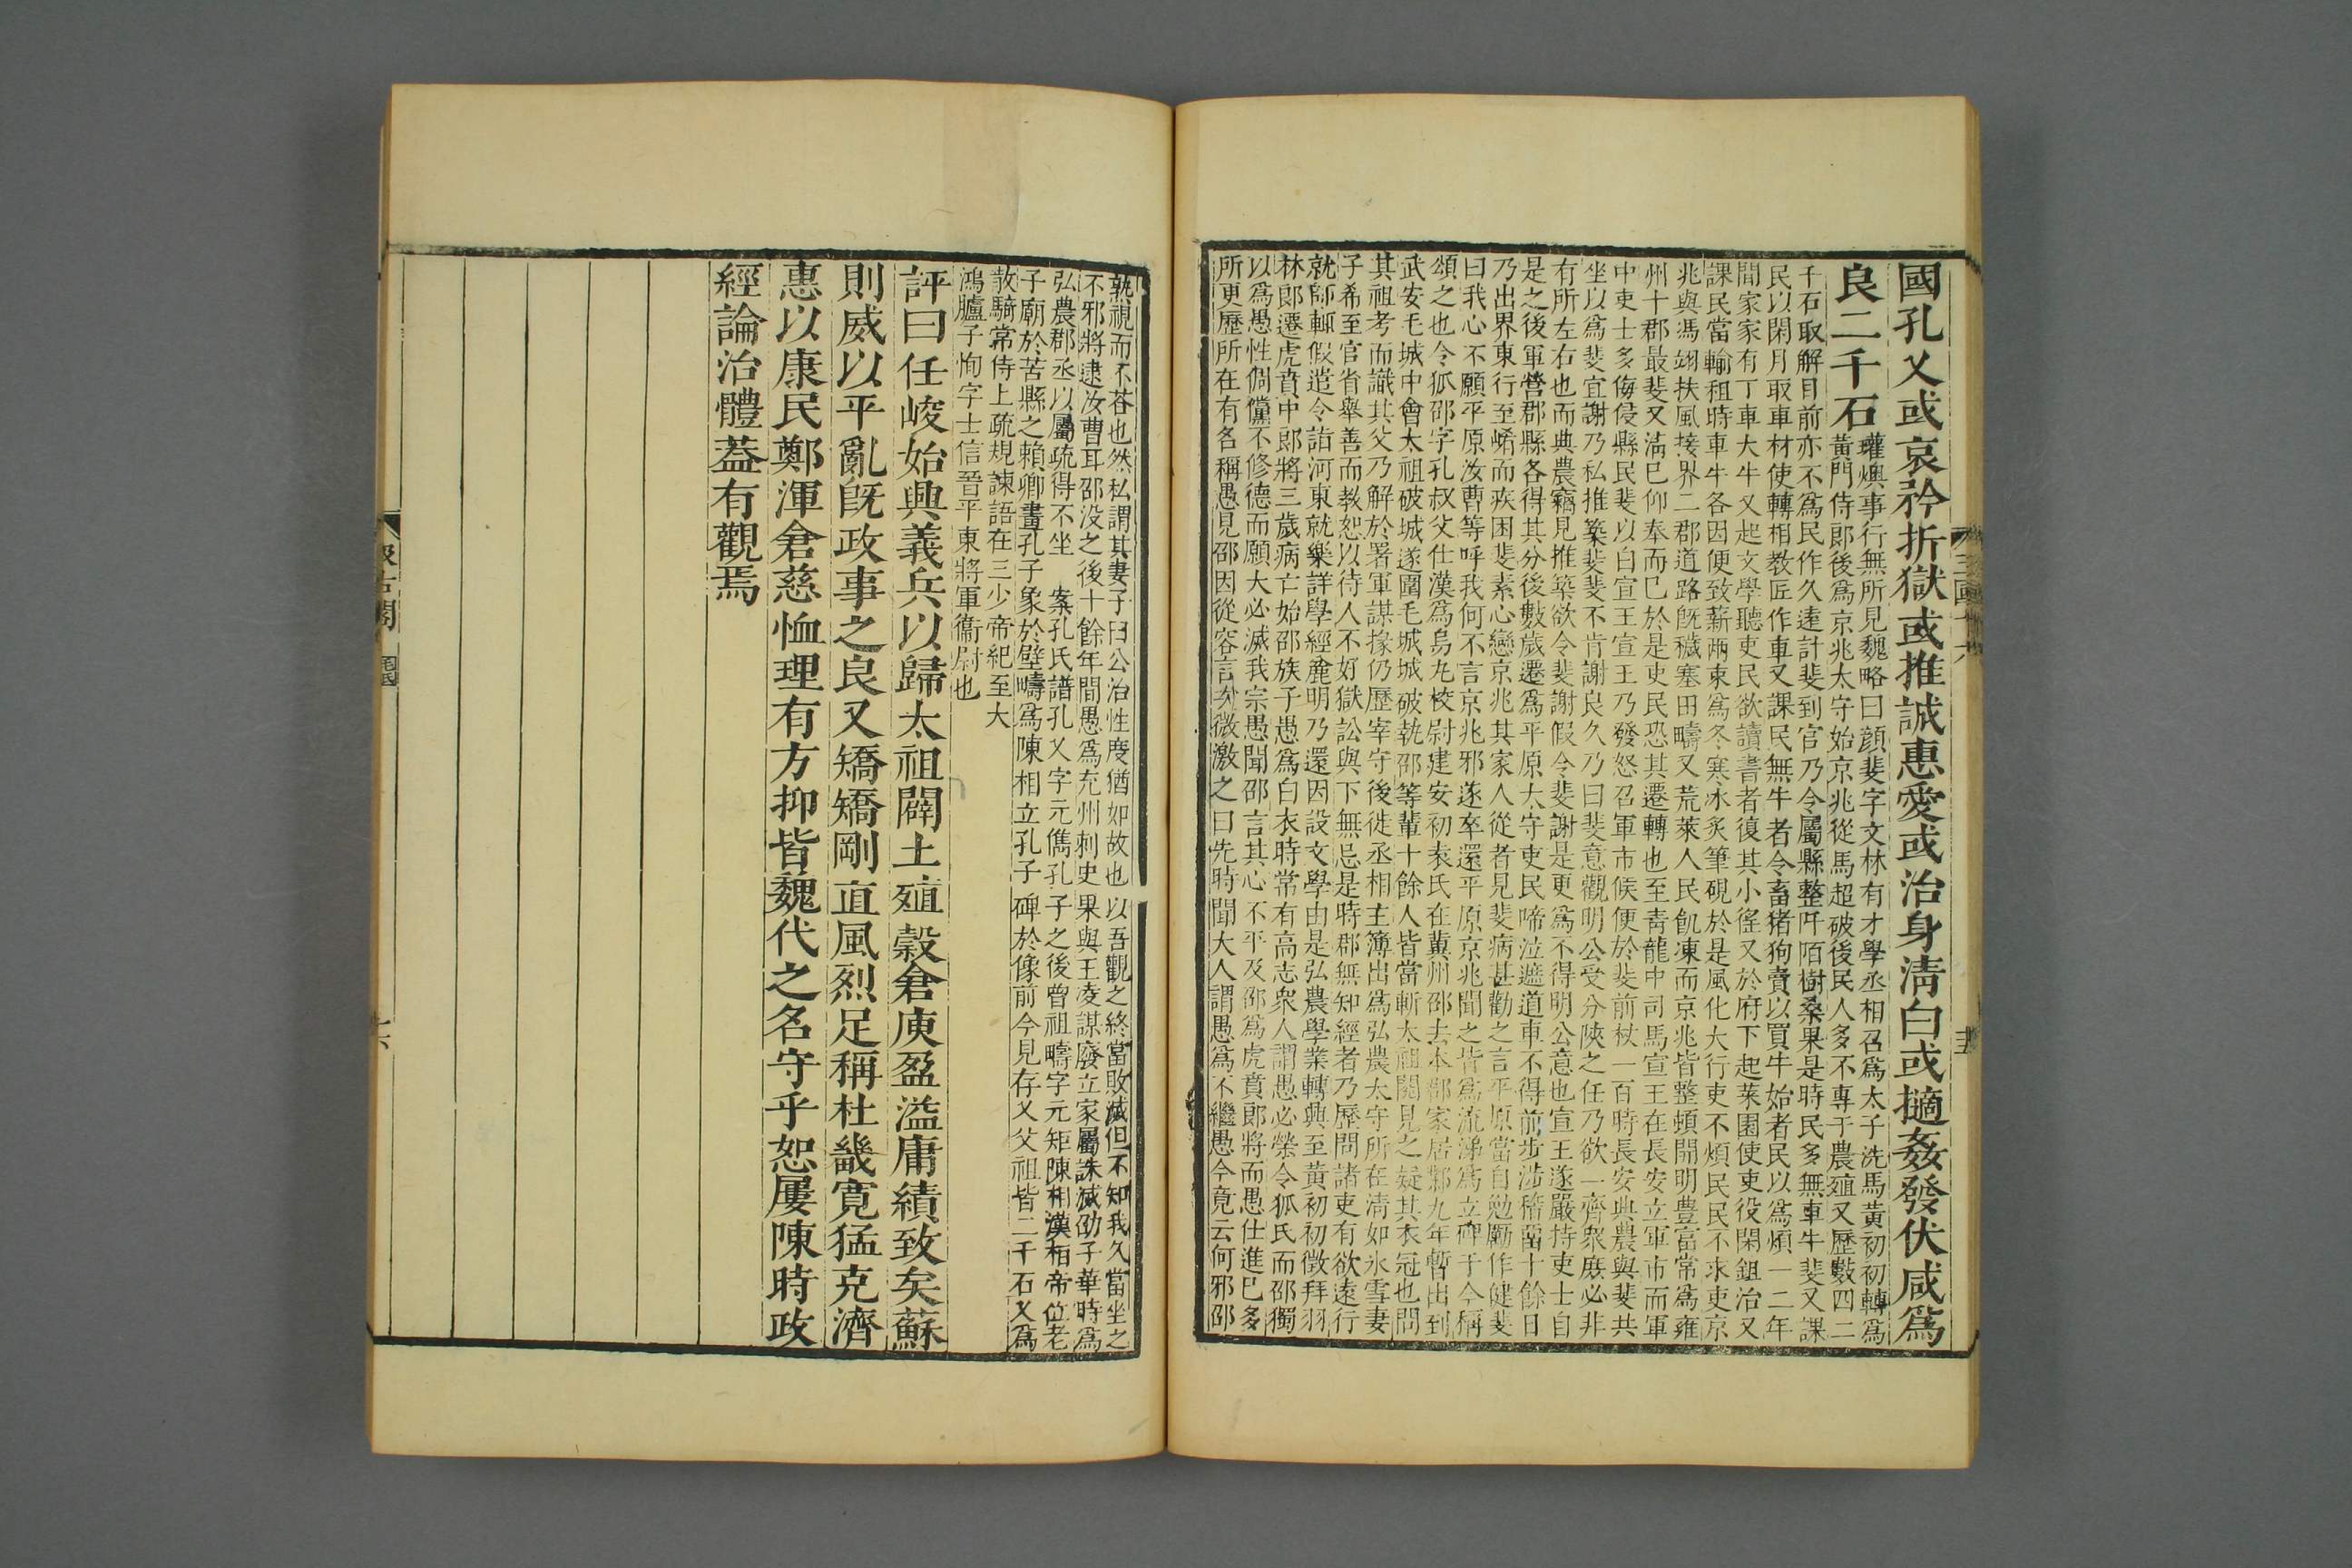 國孔乂或哀矜折獄或推誠惠愛或治身清白或擿姦發伏咸爲
良二千石
瓘燠事行無所見魏略曰顔斐字文林有才學丞相召爲太子洗馬黃初初轉爲
黃門侍郎後爲京兆太守始京兆從馬超破後民人多不專于農殖又歷數四二
千石取解目前亦不爲民作久遠計斐到官乃令屬縣整阡陌樹桑果是時民多無車牛斐又課
民以閑月取車材使轉相教匠作車又課民無牛者令畜猪狗賣以買牛始者民以爲煩一二年
間家家有丁車大牛又起文學聽吏民欲讀書者復其小徭又於府下起菜園使吏役閑鉏治又
課民當輸租時車牛各因便致薪兩束爲冬寒冰炙筆硯於是風化大行吏不煩民民不求吏京
兆與馮翊扶風接界二郡道路旣穢塞田疇又荒萊人民飢凍而京兆皆整頓開明豊富常爲雍
州十郡最斐又淸巳仰奉而巳於是吏民恐其遷轉也至靑龍中司馬宣王在長安立軍市而軍
中吏士多侮侵縣民斐以白宣王宣王乃發怒召軍市候便於斐前杖一百時長安典農與斐共
坐以爲斐宜謝乃私推築斐斐不肯謝良久乃曰斐意觀明公受分陝之任乃欲一齊衆庶必非
有所左右也而典農竊見推築欲令斐謝假令斐謝是更爲不得明公意也宣王遂嚴持吏士自
是之後軍營郡縣各得其分後數歲遷爲平原太守吏民啼泣遮道車不得前步步稽留十餘日
乃出界東行至崤而疾困斐素心戀京兆其家人從者見斐病甚勸之言平原當自勉勵作健斐
曰我心不願平原汝曹等呼我何不言京兆邪遂卒還平原京兆聞之皆爲流涕爲立碑于今稱
頌之也令狐邵字孔叔父仕漢爲烏丸校尉建安初袁氏在冀州邵去本郡家居鄴九年暫出到
武安毛城中會太祖破城遂圍毛城城破執邵等輩十餘人皆當斬太祖閱見之疑其衣冠也問
其祖考而識其父乃解於署軍謀掾仍歷宰守後徙丞相主簿出爲弘農太守所在淸如氷雪妻
子希至官省舉善而教恕以待人不好獄訟與下無忌是時郡無知經者乃歷問諸吏有欲遠行
就師輒假遣令詣河東就樂詳學經麄明乃還因設文學由是弘農學業轉興至黃初初徵拜羽
林郎遷虎賁中郎將三歲病亡始邵族子愚爲白衣時常有高志衆人謂愚必榮令狐氏而邵獨
以爲愚性倜儻不修德而願大必滅我宗愚聞邵言其心不平及邵爲虎賁郎將而愚仕進巳多
所更歷所在有名稱愚見邵因從容言次微激之曰先時聞大人謂愚爲不繼愚今竟云何邪邵
孰視而不荅也然私謂其妻子曰公治性度猶如故也以吾觀之終當敗滅但不知我久當坐之
不邪將逮汝曹耳邵没之後十餘年間愚爲兖州刺史果與王凌謀廢立家屬誅滅劭子華時爲
弘農郡丞以屬疏得不坐 案孔氏譜孔乂字元儁孔子之後曾祖疇字元矩陳相漢桓帝位老
子廟於苦縣之賴鄉畫孔子象於壁疇爲陳相立孔子 碑於像前今見存乂父祖皆二千石乂爲
散騎常侍上疏規諫語在三少帝紀至大
鴻臚子恂字士信晉平東將軍衞尉也
評曰任峻始興義兵以歸太祖闢土殖穀倉庾盈溢庸績致矣蘇
則威以平亂旣政事之良又矯矯剛直風烈足稱杜畿寬猛克濟
惠以康民鄭渾倉慈恤理有方抑皆魏代之名守乎恕屢陳時政
經論治體蓋有觀焉